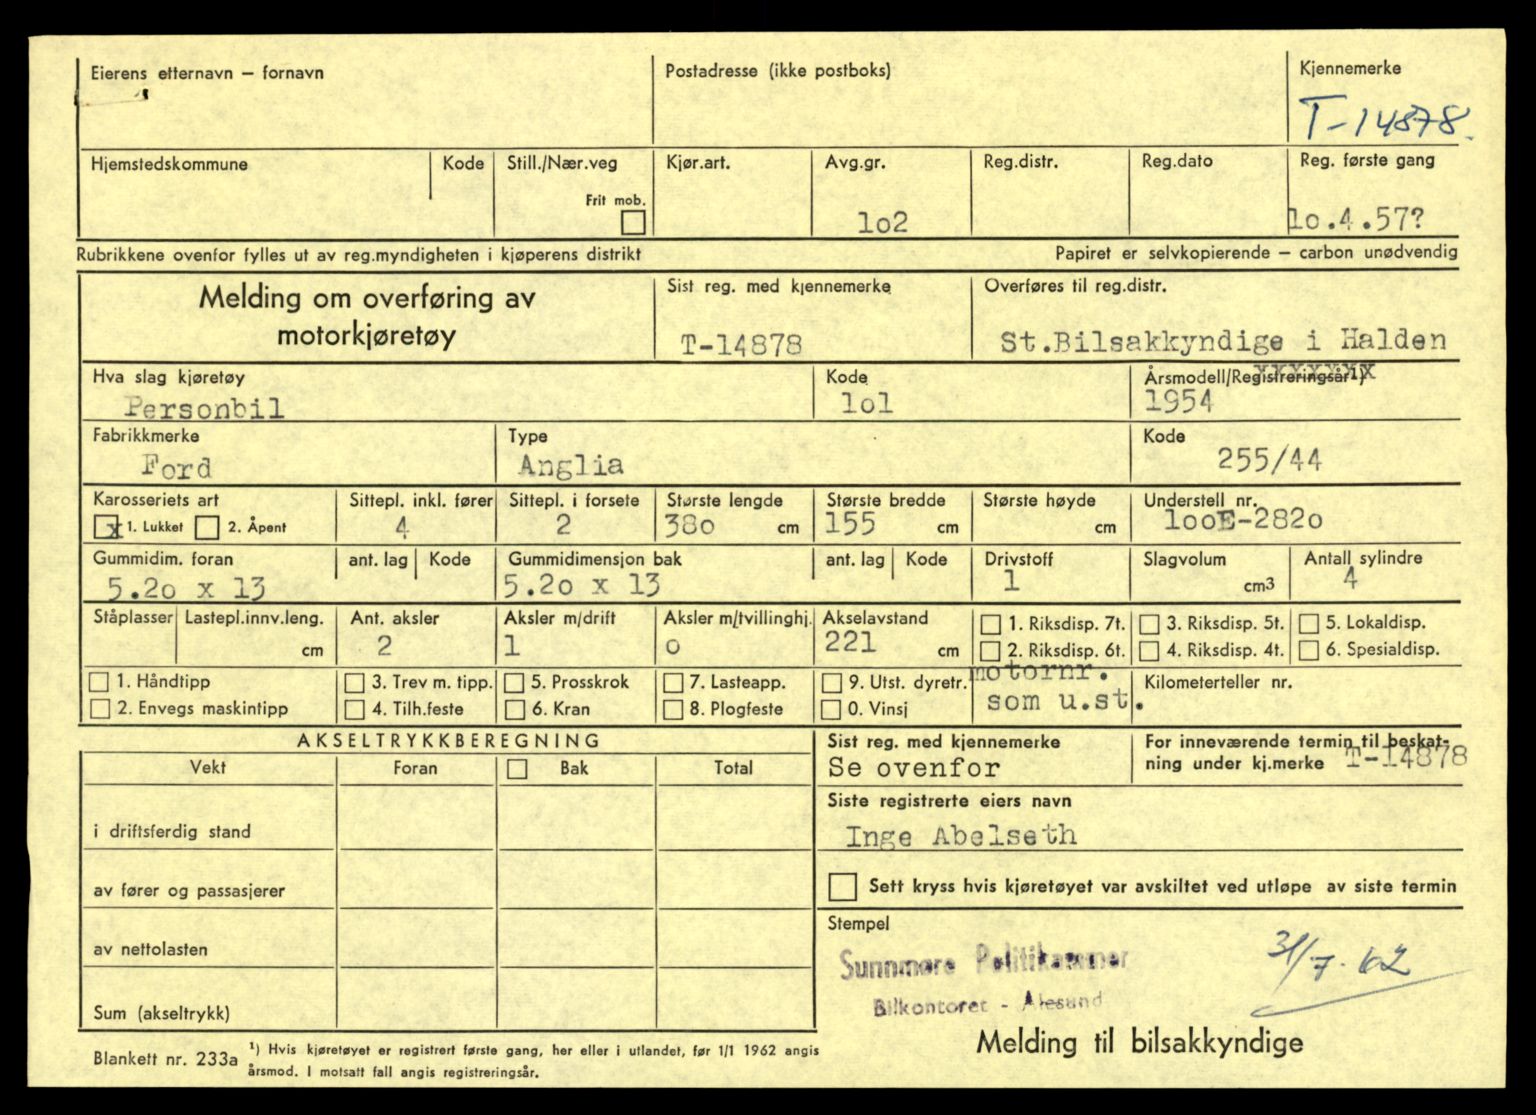 Eierens etternavn – fornavn
Postadresse (ikke postboks)
Kjennemerke
T-14878.
Hjemstedskommune
Kode
Still./Nær.veg
Frit mob.
Kjør.art.
Avg.gr.
lo2
Reg.distr.
Reg.dato
Reg. første gang
lo.4.57?
Rubrikkene ovenfor fylles ut av reg.myndigheten i kjøperens distrikt
Papiret er selvkopierende – carbon unødvendig
Melding om overføring av
motorkjøretøy
Sist reg. med kjennemerke
T-14878
Overføres til reg.distr.
St.Bilsakkyndige i Halden
Hva slag kjøretøy
Personbil
Kode
lol
Årsmodell/Registreringsår¹)
xxxxxxx
1954
Fabrikkmerke
Ford
Type
Anglia
Kode
255/44
Karosseriets art
x 1. Lukket 2. Åpent
Sittepl. inkl. fører
4
Sittepl. i forsete
2
Største lengde
38o cm
Største bredde
155 cm
Største høyde
cm
Understell nr.
looE-282o
Gummidim. foran
5.2o x 13
ant. lag
Kode
Gummidimensjon bak
5.2o x 13
ant. lag
Kode
Drivstoff
1
Slagvolum
cm3
Antall sylindre
4
Ståplasser
Lastepl.innv.leng.
cm
Ant. aksler
2
Aksler m/drift
1
Aksler m/tvillinghj.
o
Akselavstand
221 cm
1. Riksdisp. 7t.
2. Riksdisp. 6t.
3. Riksdisp. 5t.
4. Riksdisp. 4t.
5. Lokaldisp.
6. Spesialdisp.
1. Håndtipp
2. Envegs maskintipp
3. Trev m. tipp.
4. Tilh.feste
5. Prosskrok
6. Kran
7. Lasteapp.
8. Plogfeste
9. Utst. dyretr.
0. Vinsj
motornr.
som u.st.
Kilometerteller nr.
AKSELTRYKKBEREGNING
Vekt
Foran
Bak
Total
i driftsferdig stand
av fører og passasjerer
av nettolasten
Sum (akseltrykk)
Sist reg. med kjennemerke
Se ovenfor
For inneværende termin til beskat-
ning under kj.merke T-14878
Siste registrerte eiers navn
Inge Abelseth
Sett kryss hvis kjøretøyet var avskiltet ved utløpe av siste termin
Stempel
Sunnmøre Politikammer
Bilkontoret - Ålesund
31/7. 62
Melding til bilsakkyndige
Blankett nr. 233a
¹) Hvis kjøretøyet er registrert første gang, her eller i utlandet, før 1/1 1962 angis
årsmod. I motsatt fall angis registreringsår.